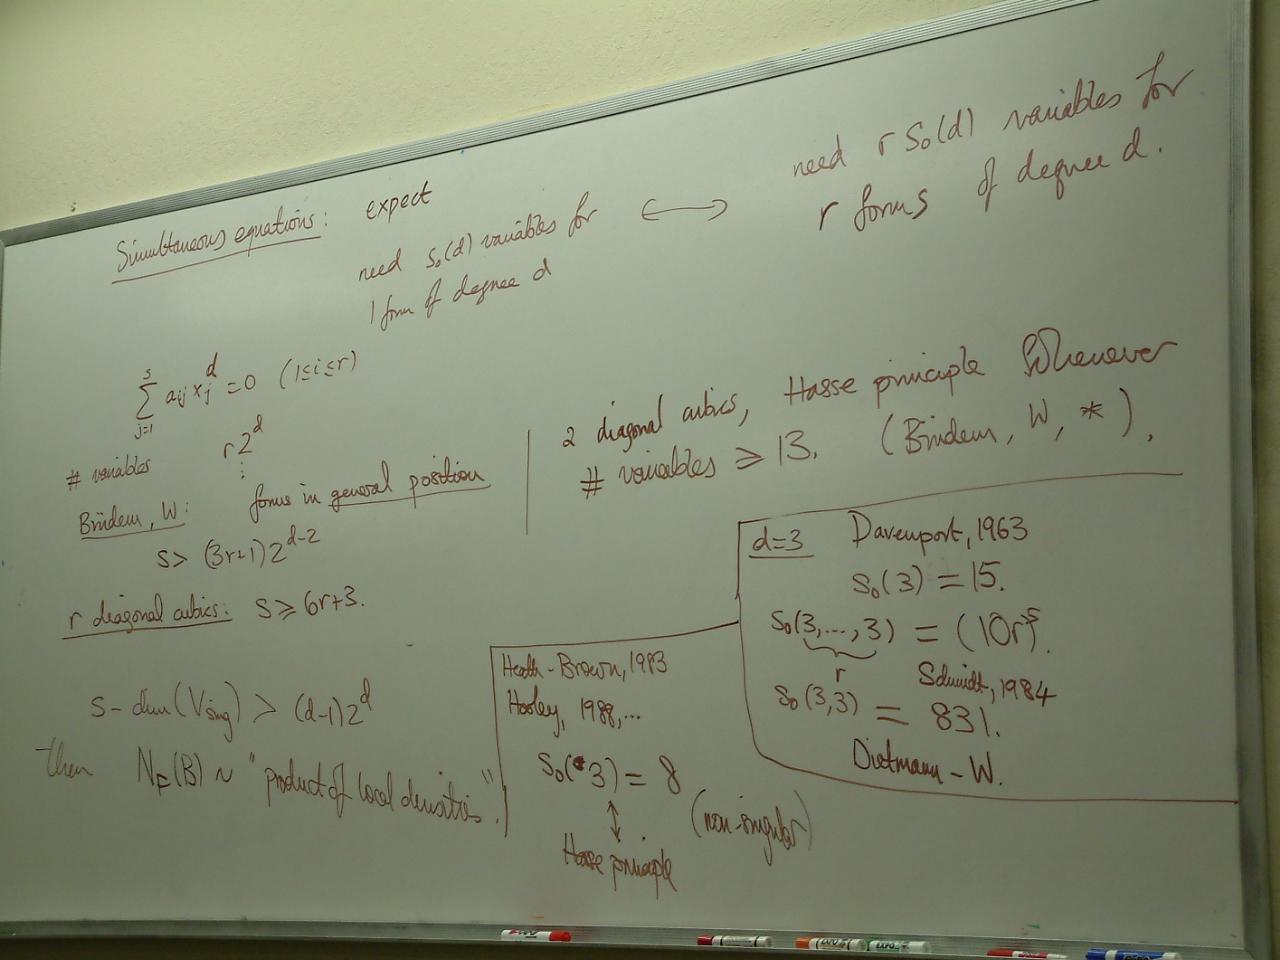 Simultaneous equations: expect
need s₀(d) variables for
1 form of degree d
⟷
need r s₀(d) variables for
r forms of degree d.
∑_{j=1}^{s} a_{ij} x_j^d = 0 (1≤i≤r)
# variables r2^d
⋮
Brüdern, W: forms in general position
s > (3r+1)2^{d-2}
r diagonal cubics: s ≥ 6r+3.
2 diagonal cubics, Hasse principle whenever
# variables ≥ 13. (Brüdern, W, *).
s - dim(V_sing) > (d-1)2^d
then N_F(B) ~ "product of local densities".
Heath-Brown, 1983
Hooley, 1988,...
s₀(*3) = 8
(non-singular)
↕
Hasse principle
d=3 Davenport, 1963
s₀(3) = 15.
s₀(3,...,3) = (10r)^5.
r
Schmidt, 1984
s₀(3,3) = 831.
Dietmann - W.